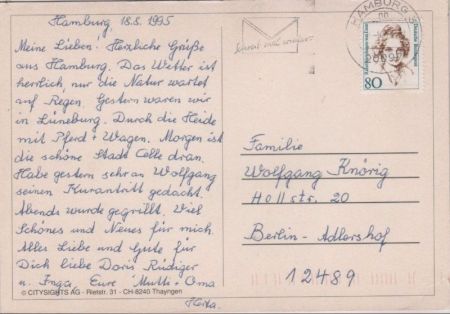 Hamburg 18.5.1995
Meine Lieben. Herzliche Grüße
aus Hamburg. Das Wetter ist
herrlich, nur die Natur wartet
auf Regen. Gestern waren wir
in Lüneburg. Durch die Heide
mit Pferd + Wagen. Morgen ist
die schöne Stadt Celle dran.
Habe gestern sehr an Wolfgang
seinen Kurantritt gedacht.
Abends wurde gegrillt. Viel
Schönes und Neues für mich.
Alles Liebe und Gute für
Dich liebe Doris Rüdiger
u. Inga, Eure Mutti + Oma
Herta.
© CITYSIGHTS AG - Rietstr. 31 - CH-8240 Thayngen
HAMBURG
Deutsche Bundespost
80
Familie
Wolfgang Knörig
Hollstr. 20
Berlin - Adlershof
12489